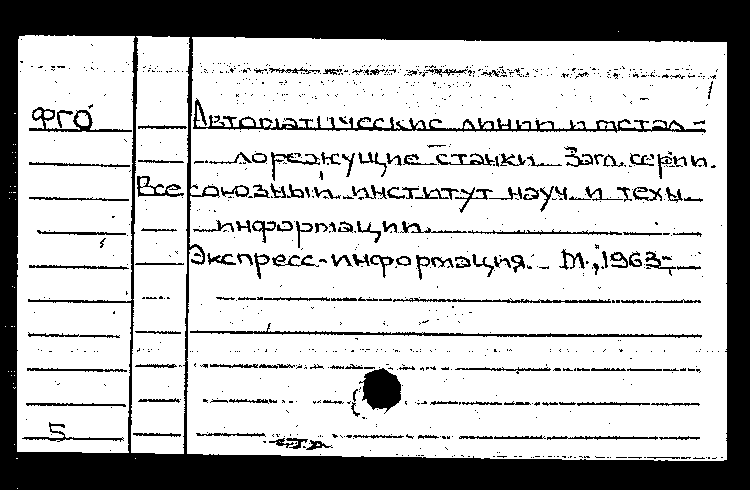 ФГО Автоматические линии и метал-
лорежущие станки. Загл. серии.
Всесоюзный институт науч. и техн.
информации.
Экспресс-информация. М., 1963-
5